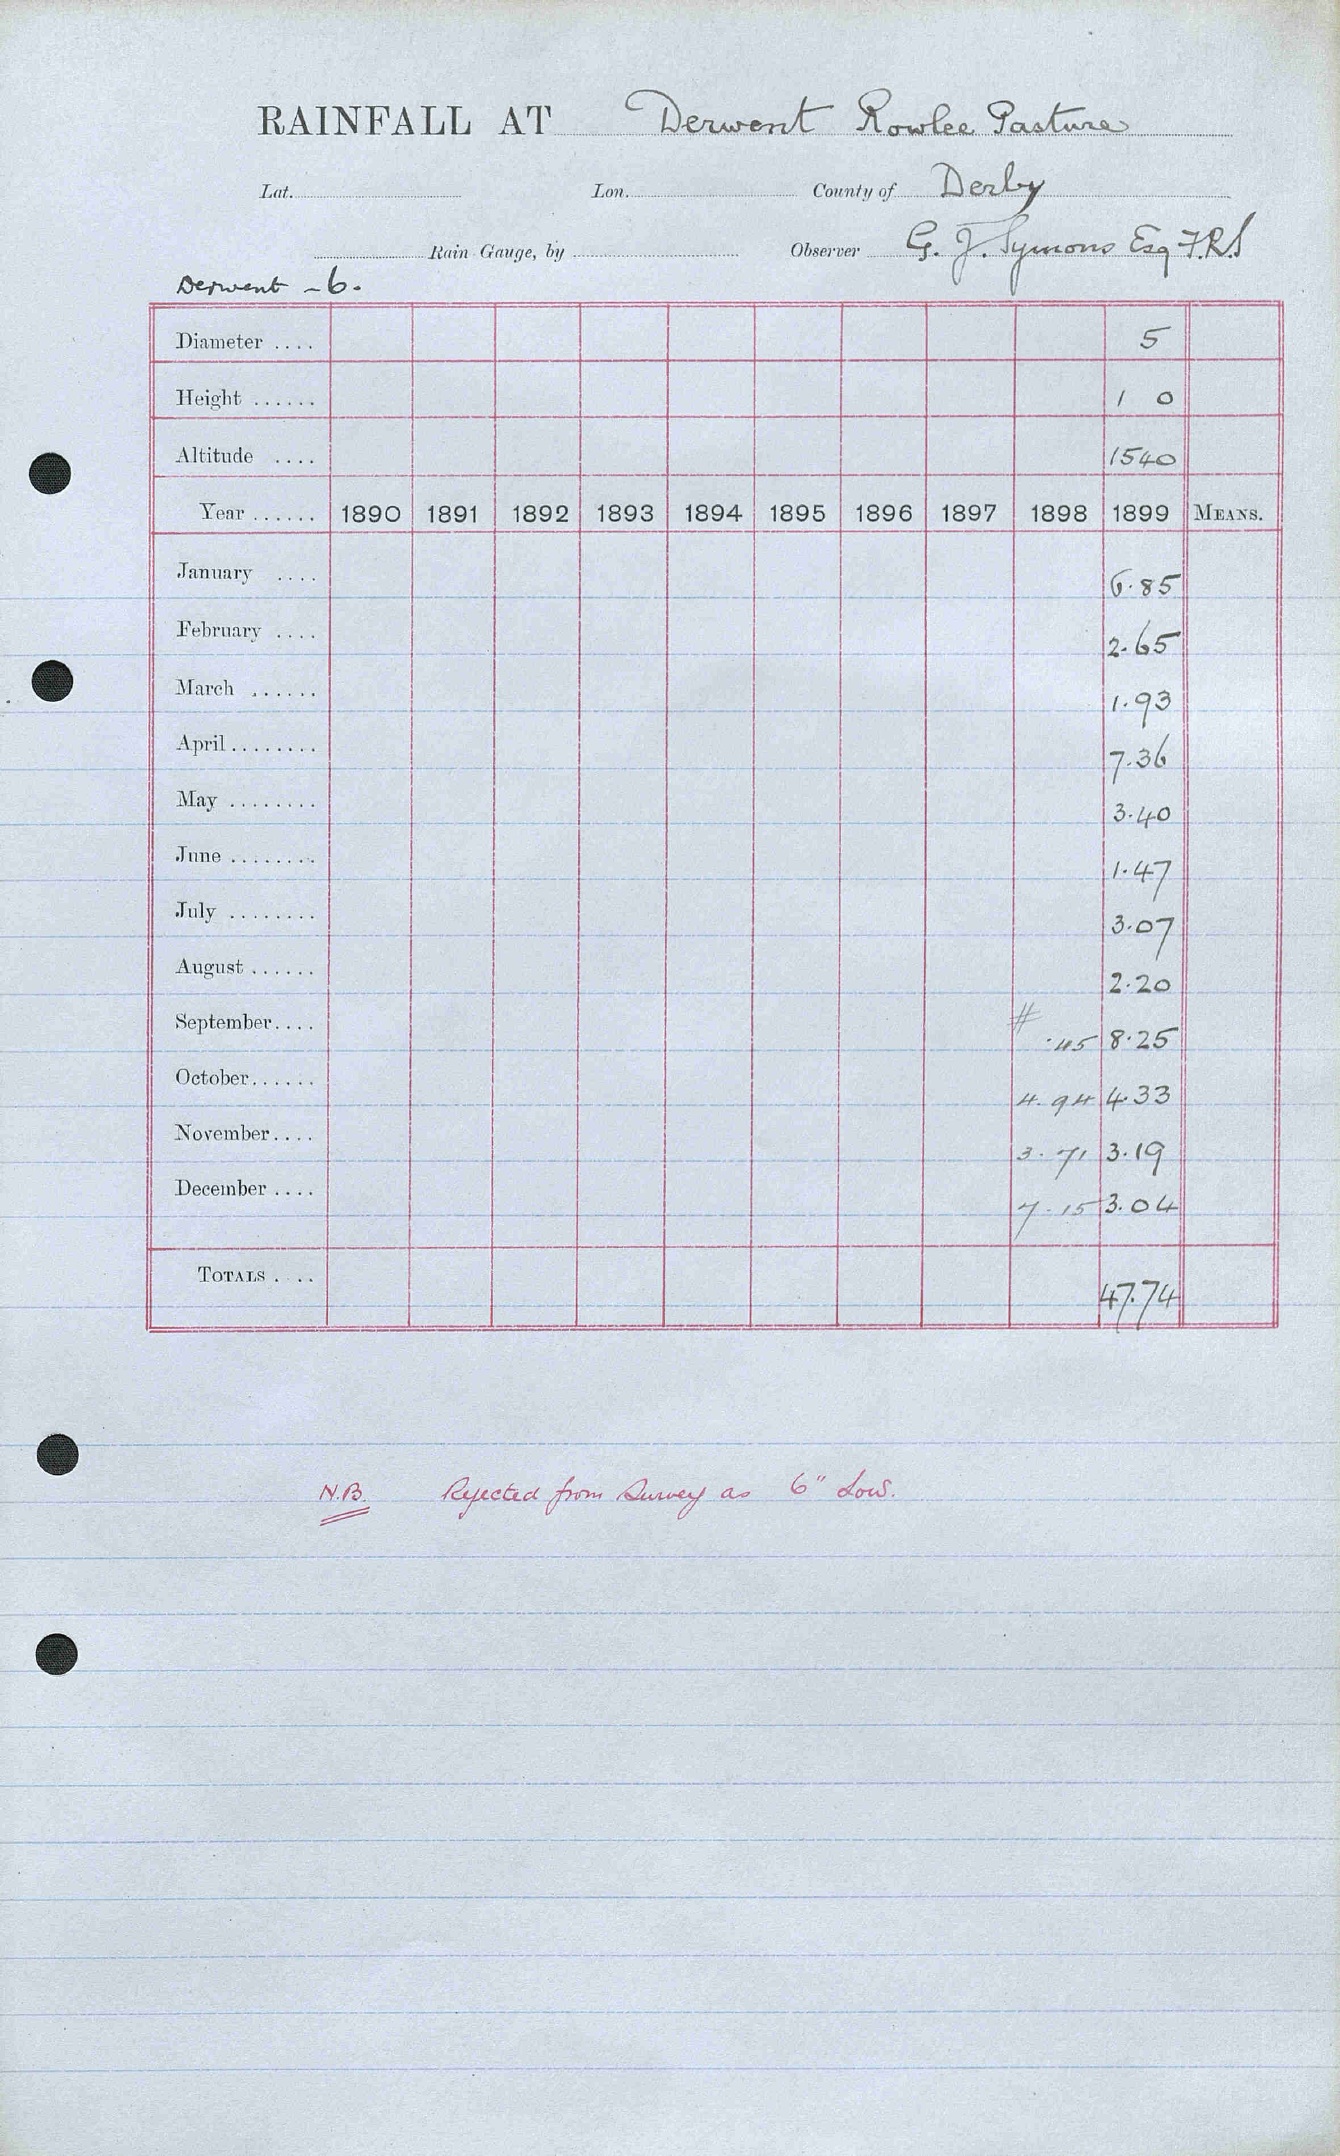 RAINFALL AT Derwent Rowlee Pasture
Lat. Lon. County of Derby
Rain Gauge, by Observer G. J. Symons Esq F.R.S
Derwent - 6.
Diameter .... 5
Height ...... 1 0
Altitude .... 1540
Year ...... 1890 1891 1892 1893 1894 1895 1896 1897 1898 1899 MEANS.
January .... 6.85
February .... 2.65
March ...... 1.93
April ........ 7.36
May ........ 3.40
June ........ 1.47
July ........ 3.07
August ...... 2.20
September.... # .45 8.25
October...... 4.94 4.33
November.... 3.71 3.19
December .... 7.15 3.04
TOTALS .... 47.74
N.B. Rejected from Survey as 6" Low.